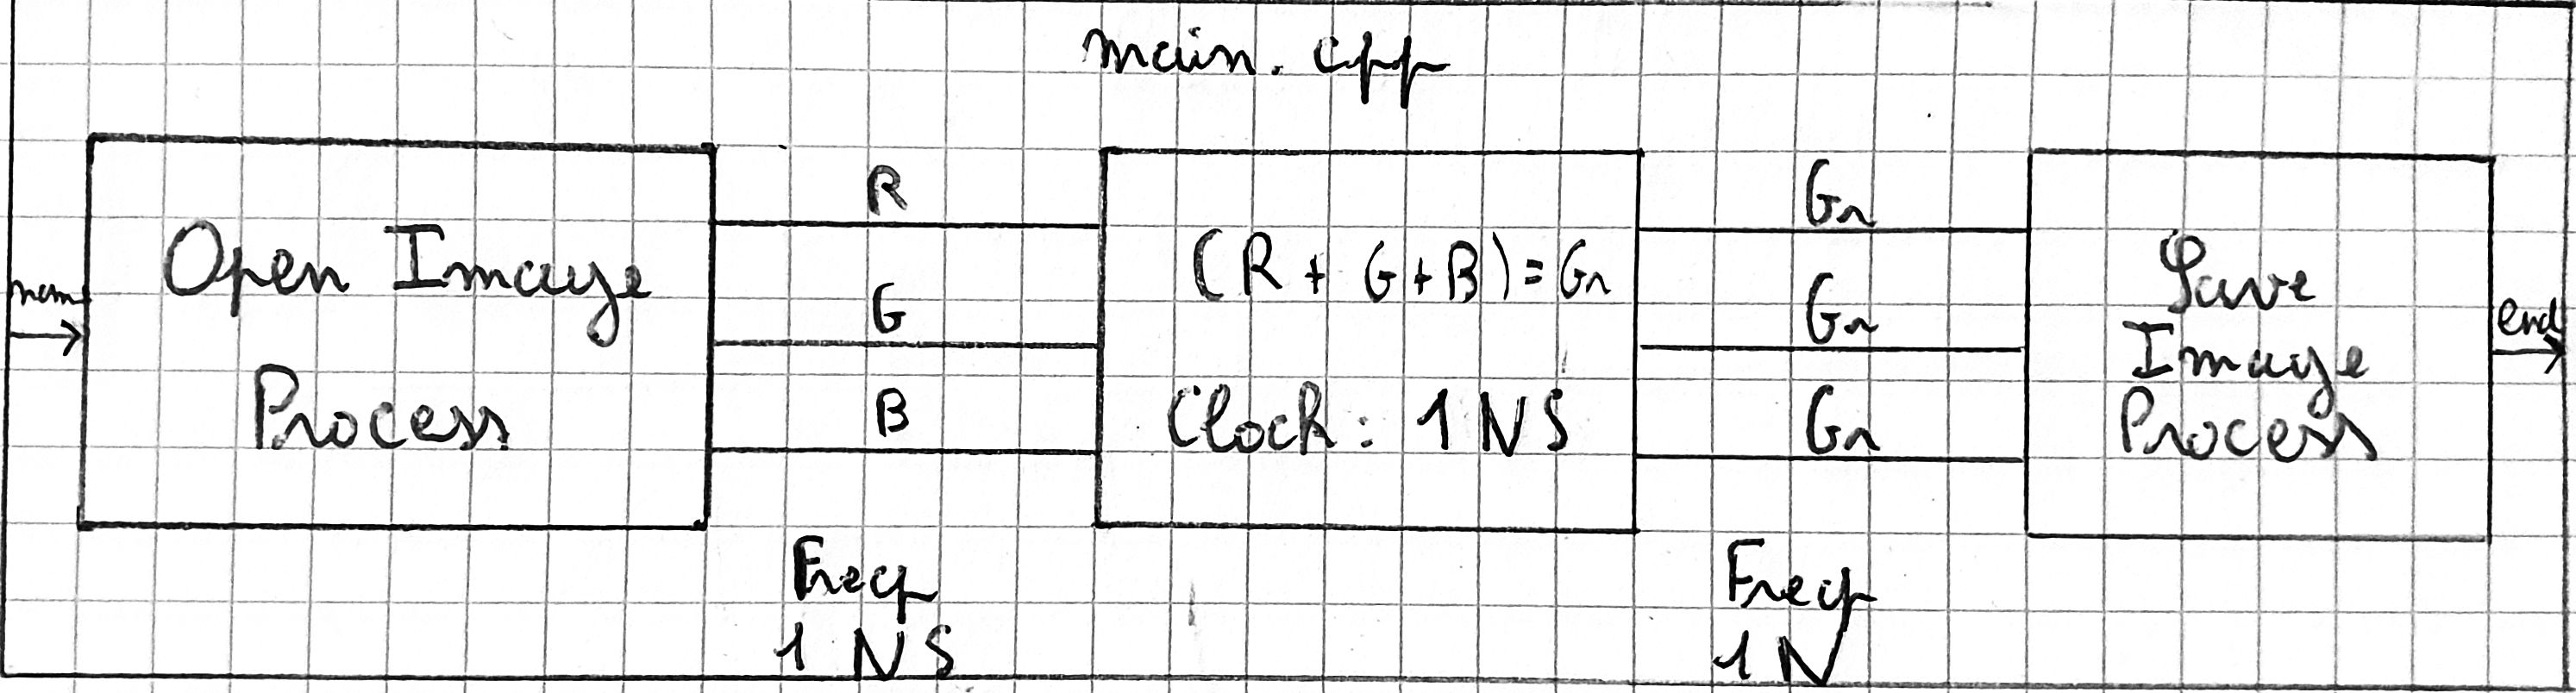 main.cpp
nom
Open Image
Process
R
G
B
Freq
1 NS
(R + G + B) = Gr
Clock: 1 NS
Gr
Gr
Gr
Freq
1 N
Save
Image
Process
end